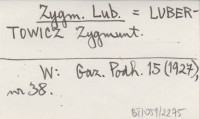 Zygm. Lub. = LUBER-
TOWICZ Zygmunt.
W: Gaz. Podh. 15 (1927),
nr 38.